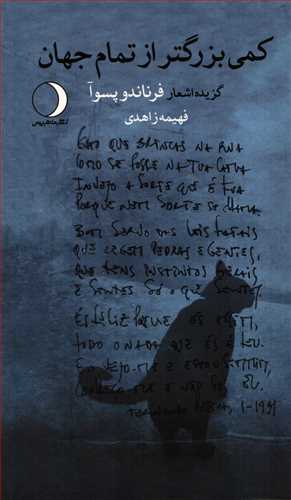 کمی بزرگتر از تمام جهان
گزیده اشعار فرناندو پسوآ
فهیمه زاهدی
GATO QUE BRINCAS NA RUA
COMO SE FOSSE NA CAMA,
INVEJO A SORTE QUE É TUA
PORQUE NEM SORTE SE CHAMA.
BOM SERVO DAS LEIS FATAIS
QUE REGEM PEDRAS E GENTES,
QUE TENS INSTINTOS GERAIS
E SENTES SÓ O QUE SENTES.
ÉS FELIZ PORQUE ÉS ASSIM,
TODO O NADA QUE ÉS É TEU.
EU VEJO-ME E ESTOU SEM MIM,
CONHEÇO-ME E NÃO SOU EU.
FERNANDO PESSOA, 1-1931